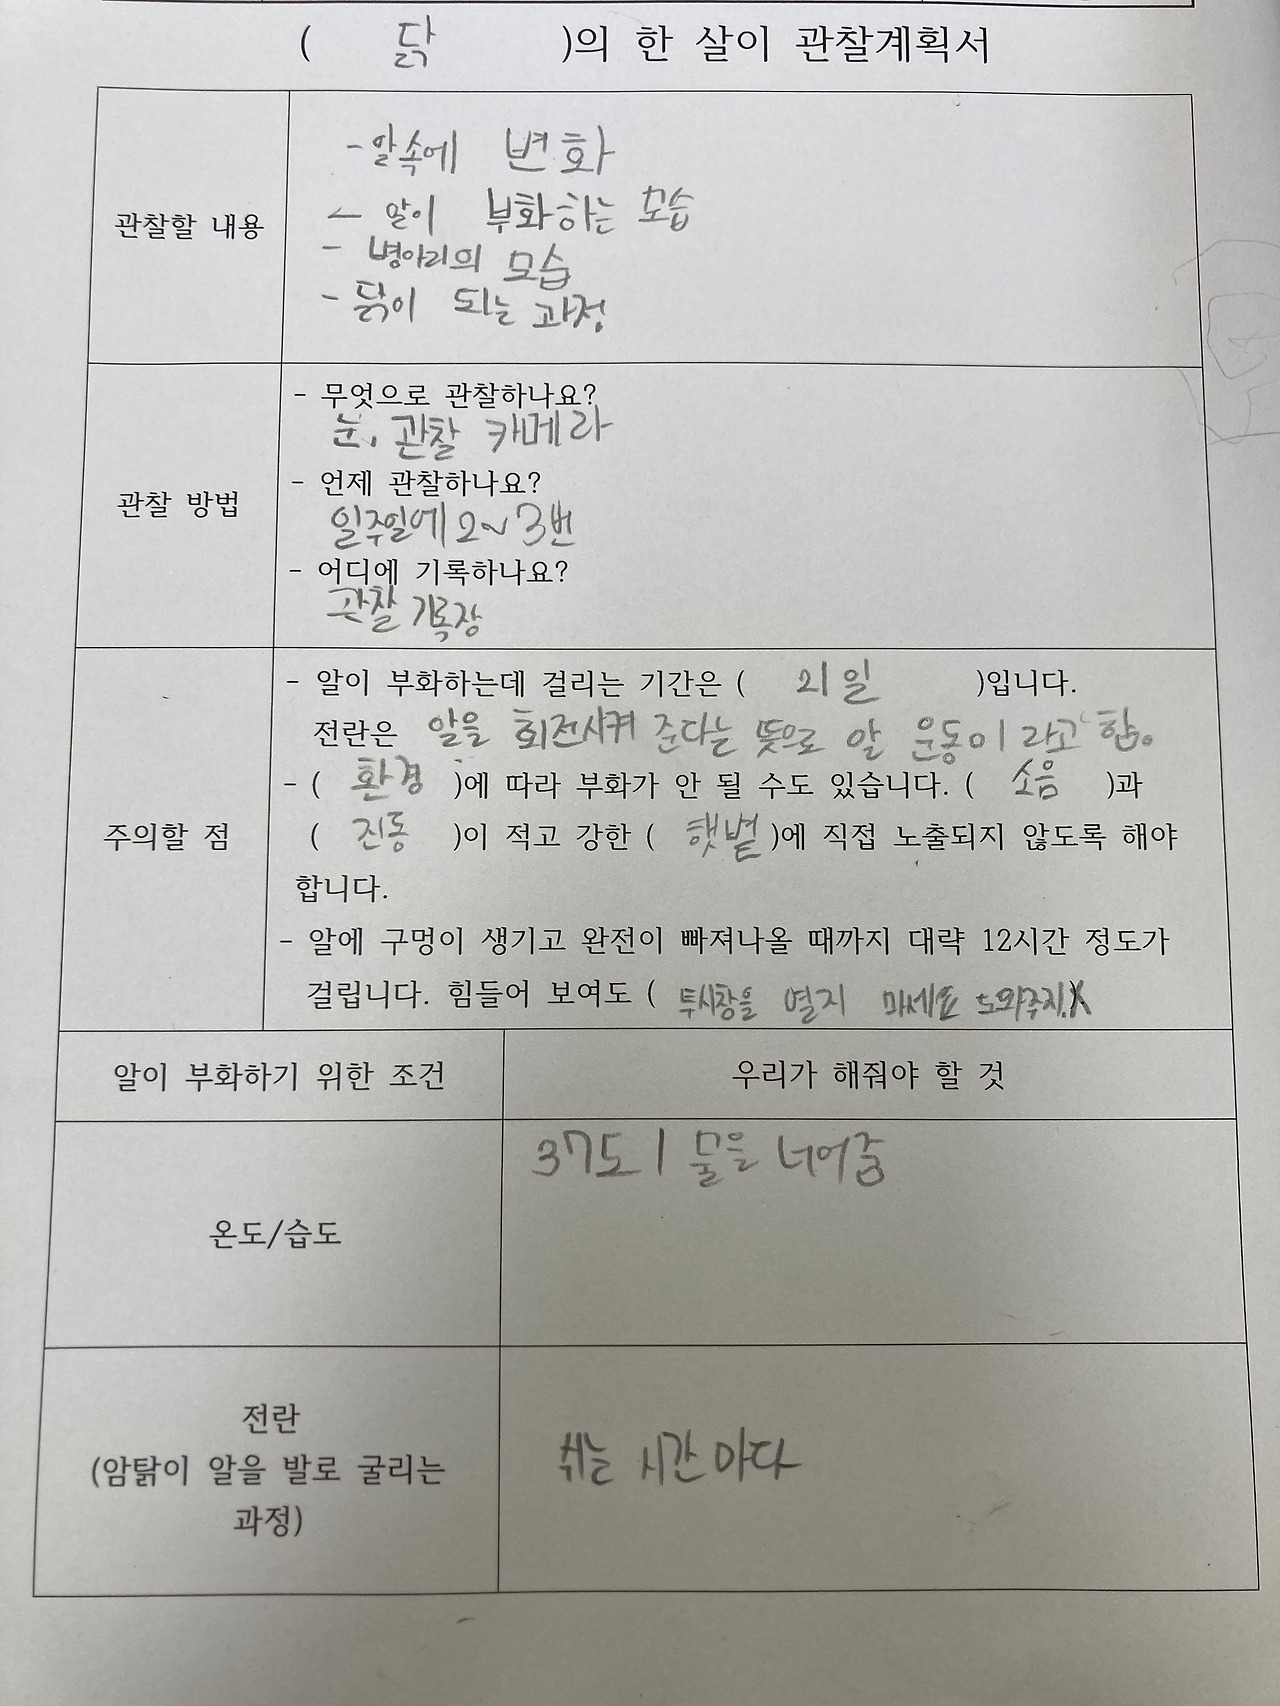 ( 닭 )의 한 살이 관찰계획서
관찰할 내용
- 알속에 변화
- 알이 부화하는 모습
- 병아리의 모습
- 닭이 되는 과정
관찰 방법
- 무엇으로 관찰하나요?
눈, 관찰 카메라
- 언제 관찰하나요?
일주일에 2~3번
- 어디에 기록하나요?
관찰 기록장
주의할 점
- 알이 부화하는데 걸리는 기간은 ( 21일 )입니다.
전란은 알을 회전시켜 준다는 뜻으로 알 운동이라고 함.
- ( 환경 )에 따라 부화가 안 될 수도 있습니다. ( 소음 )과
( 진동 )이 적고 강한 ( 햇볕 )에 직접 노출되지 않도록 해야
합니다.
- 알에 구멍이 생기고 완전이 빠져나올 때까지 대략 12시간 정도가
걸립니다. 힘들어 보여도 ( 투시창을 열지 마세요 도와주지.X
알이 부화하기 위한 조건
우리가 해줘야 할 것
온도/습도
37도 | 물을 너어줌
전란
(암탉이 알을 발로 굴리는
과정)
쉬는 시간 마다